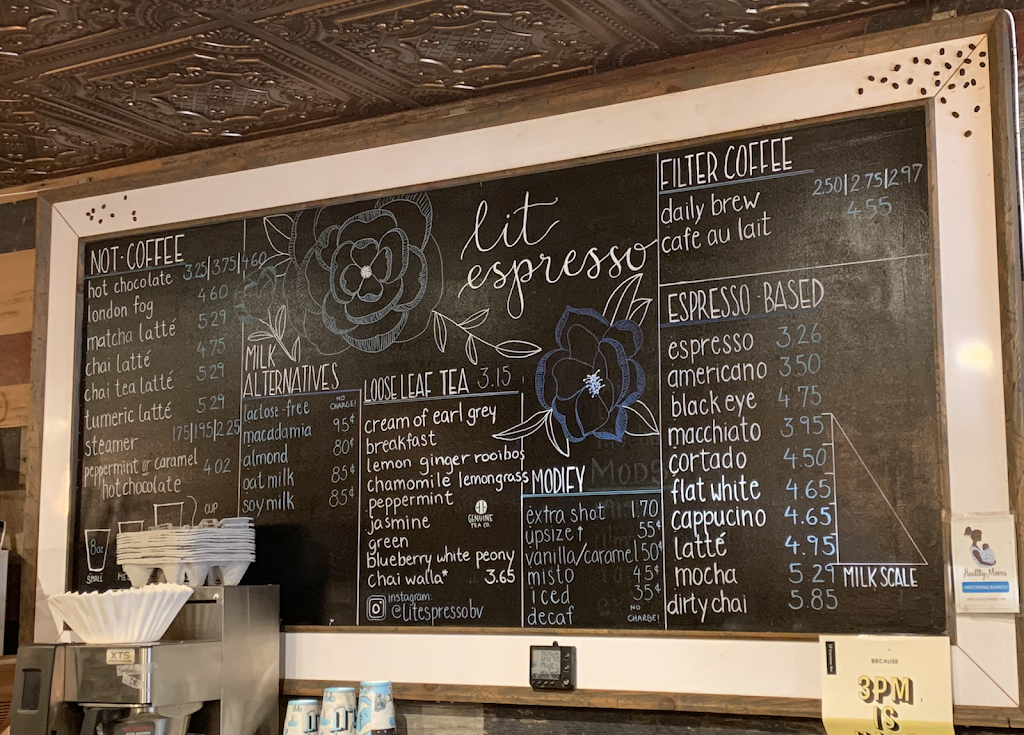 NOT-COFFEE
hot chocolate 3.25|3.75|4.60
london fog 4.60
matcha latté 5.29
chai latté 4.75
chai tea latté 5.29
turmeric latté 5.29
steamer 1.75|1.95|2.25
peppermint or caramel
hot chocolate 4.02
CUP
8oz
SMALL
MILK
ALTERNATIVES
lactose-free NO CHARGE!
macadamia 95¢
almond 80¢
oat milk 85¢
soy milk 85¢
lit
espresso
LOOSE LEAF TEA 3.15
cream of earl grey
breakfast
lemon ginger rooibos
chamomile lemongrass
peppermint
jasmine
green
blueberry white peony
chai walla* 3.65
GENUINE
TEA CO.
instagram:
@litespressobv
MODIFY
extra shot 1.70
upsize↑ 55¢
vanilla/caramel 50¢
misto 45¢
iced 35¢
decaf NO CHARGE!
MODS
FILTER COFFEE
daily brew 2.50|2.75|2.97
cafe au lait 4.55
ESPRESSO-BASED
espresso 3.26
americano 3.50
black eye 4.75
macchiato 3.95
cortado 4.50
flat white 4.65
cappucino 4.65
latté 4.95
mocha 5.29
dirty chai 5.85
MILK SCALE
Healthy Moms
XTS
BECAUSE
3PM
IS